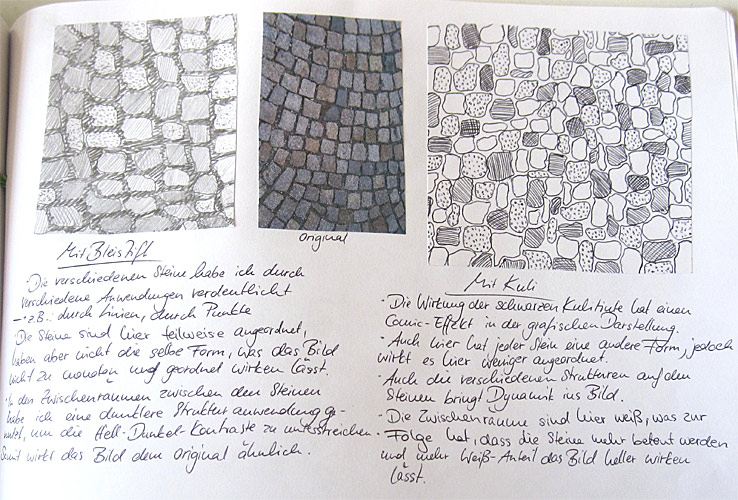 Original
Mit Bleistift
· Die verschiedenen Steine habe ich durch
verschiedene Anwendungen verdeutlicht
→ z.B.: durch Linien, durch Punkte
· Die Steine sind hier teilweise angeordnet,
haben aber nicht die selbe Form, was das Bild
nicht zu monoton und geordnet wirken lässt.
· In den Zwischenräumen zwischen den Steinen
habe ich eine dunklere Struktur anwendung ge-
nutzt, um die Hell-Dunkel-Kontraste zu unterstreichen.
Somit wirkt das Bild dem original ähnlich.
Mit Kuli
· Die Wirkung der schwarzen Kulitinte hat einen
Comic-Effekt in der grafischen Darstellung.
· Auch hier hat jeder Stein eine andere Form, jedoch
wirkt es hier weniger angeordnet.
· Auch die verschiedenen Strukturen auf den
Steinen bringt Dynamik ins Bild.
· Die Zwischenräume sind hier weiß, was zur
Folge hat, dass die Steine mehr betont werden
und mehr Weiß-Anteil das Bild heller wirken
lässt.